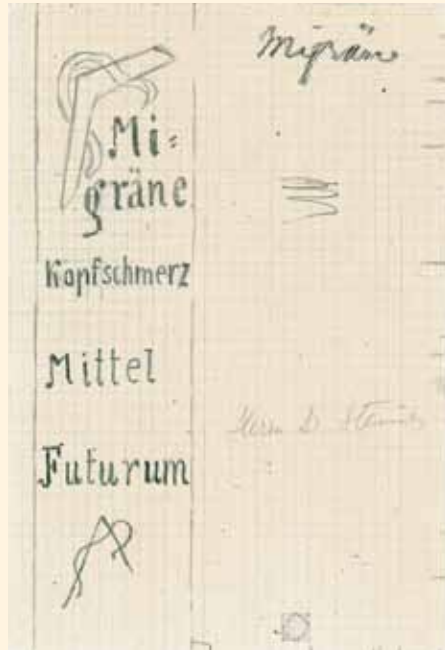 Migräne
Mi=
gräne
Kopfschmerz
Mittel
Futurum
Herrn D. Steiner